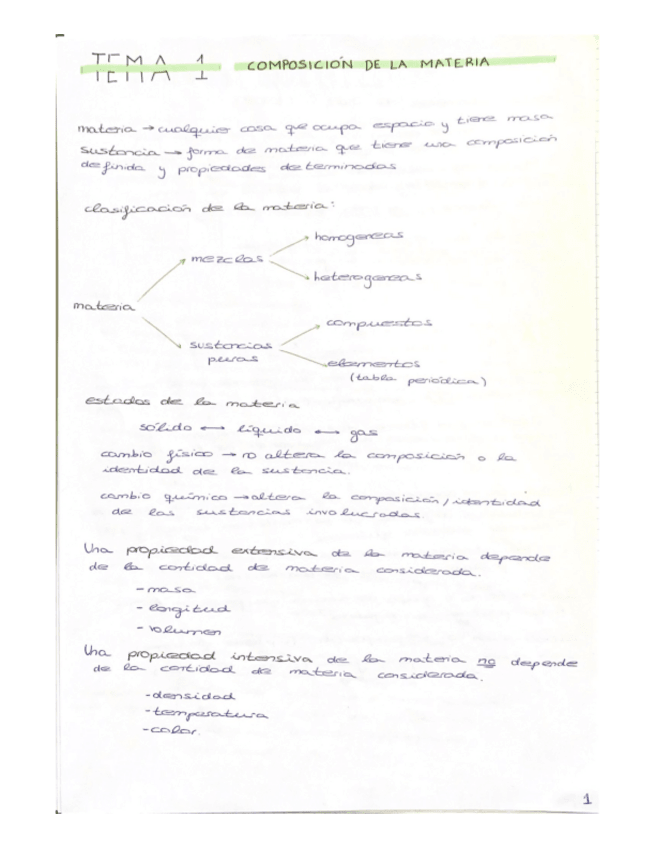 TEMA 1 COMPOSICIÓN DE LA MATERIA
materia → cualquier cosa que ocupa espacio y tiene masa
sustancia → forma de materia que tiene una composición
definida y propiedades determinadas
clasificación de la materia:
homogeneas
mezclas
heterogeneas
materia
compuestos
sustancias
puras
elementos
(tabla periódica)
estados de la materia
sólido ↔ líquido ↔ gas
cambio físico → no altera la composición o la
identidad de la sustancia.
cambio químico → altera la composición/identidad
de las sustancias involucradas.
Una propiedad extensiva de la materia depende
de la cantidad de materia considerada.
- masa
- longitud
- volumen
Una propiedad intensiva de la materia no depende
de la cantidad de materia considerada.
- densidad
- temperatura
- color.
1